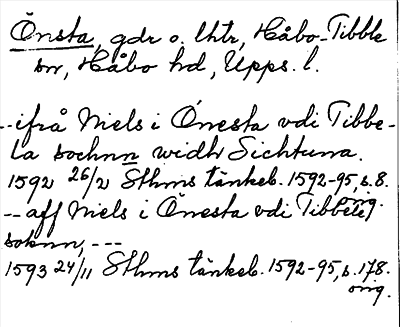 Önsta, gdr o. lhtr, Håbo-Tibble
sn, Håbo hd, Upps. l.
--ifrå Niels i Önesta vdi Tibbe-
la sochnn widh Sichtuna.
1592 26/2 Sthms tänkeb. 1592-95, s. 8.
orig.
-- aff Niels i Önesta vdi Tibbele
soknn, ---
1593 24/11 Sthms tänkeb. 1592-95, s. 178.
orig.